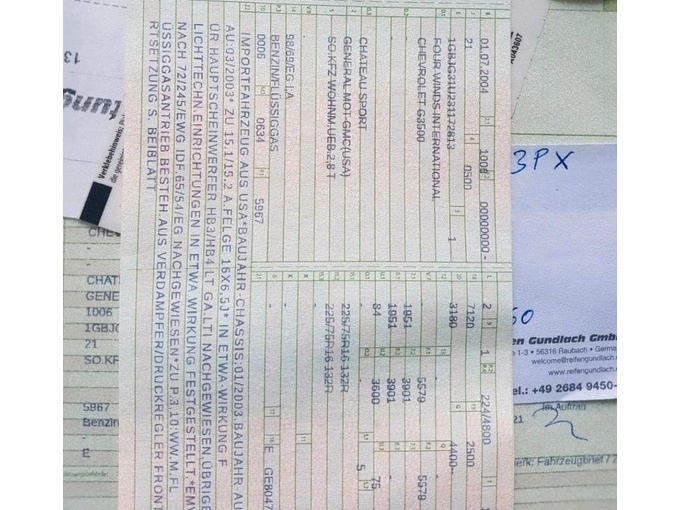 01.07.2004 1006 00000000 -
21 0500
1GBJG31U231172813 1
FOUR WINDS INTERNATIONAL
CHEVROLET G3500
CHATEAU SPORT
GENERAL MOT-GMC(USA)
SO.KFZ WOHNM.UEB.2,8 T
98/69/EG I;A
BENZINFLÜSSIGGAS
0006 0634 5967
2 1 224/4800
7120 2500
3180 4400--
- 5579 5579
1951 3901
1951 3901
84 3600 75
5
225/75R16 132R
225/75R16 132R
E GE8047
IMPORTFAHRZEUG AUS USA*BAUJAHR-CHASSIS:01/2003,BAUJAHR AU
AU:03/2003* ZU 15.1/15.2 A.FELGE 16X6.5J* IN ETWA-WIRKUNG F
ÜR HAUPTSCHEINWERFER HB3/HB4 LT GA.LTI NACHGEWIESEN,ÜBRIGE
LICHTTECHN.EINRICHTUNGEN IN ETWA WIRKUNG FESTGESTELLT.*EMV
NACH 72/245/EWG IDF.65/54/EG NACHGEWIESEN*ZU P.3,10:WW.M.FL
ÜSSIGGASANTRIEB BESTEH.AUS VERDAMPFER/DRUCKREGLER FRONT
RTSETZUNG S. BEIBLATT
13
CHAT
GENE
1006
1GBJG
21
SO.KF
5967
Benzin
-
E
3PX
50
en Gundlach Gmb
e 1-3 • 56316 Raubach • Germa
welcome@reifengundlach.
www.reifengundlach.
el.: +49 2684 9450-
21 Im Auftrag
erk: Fahrzeugbrief / Z